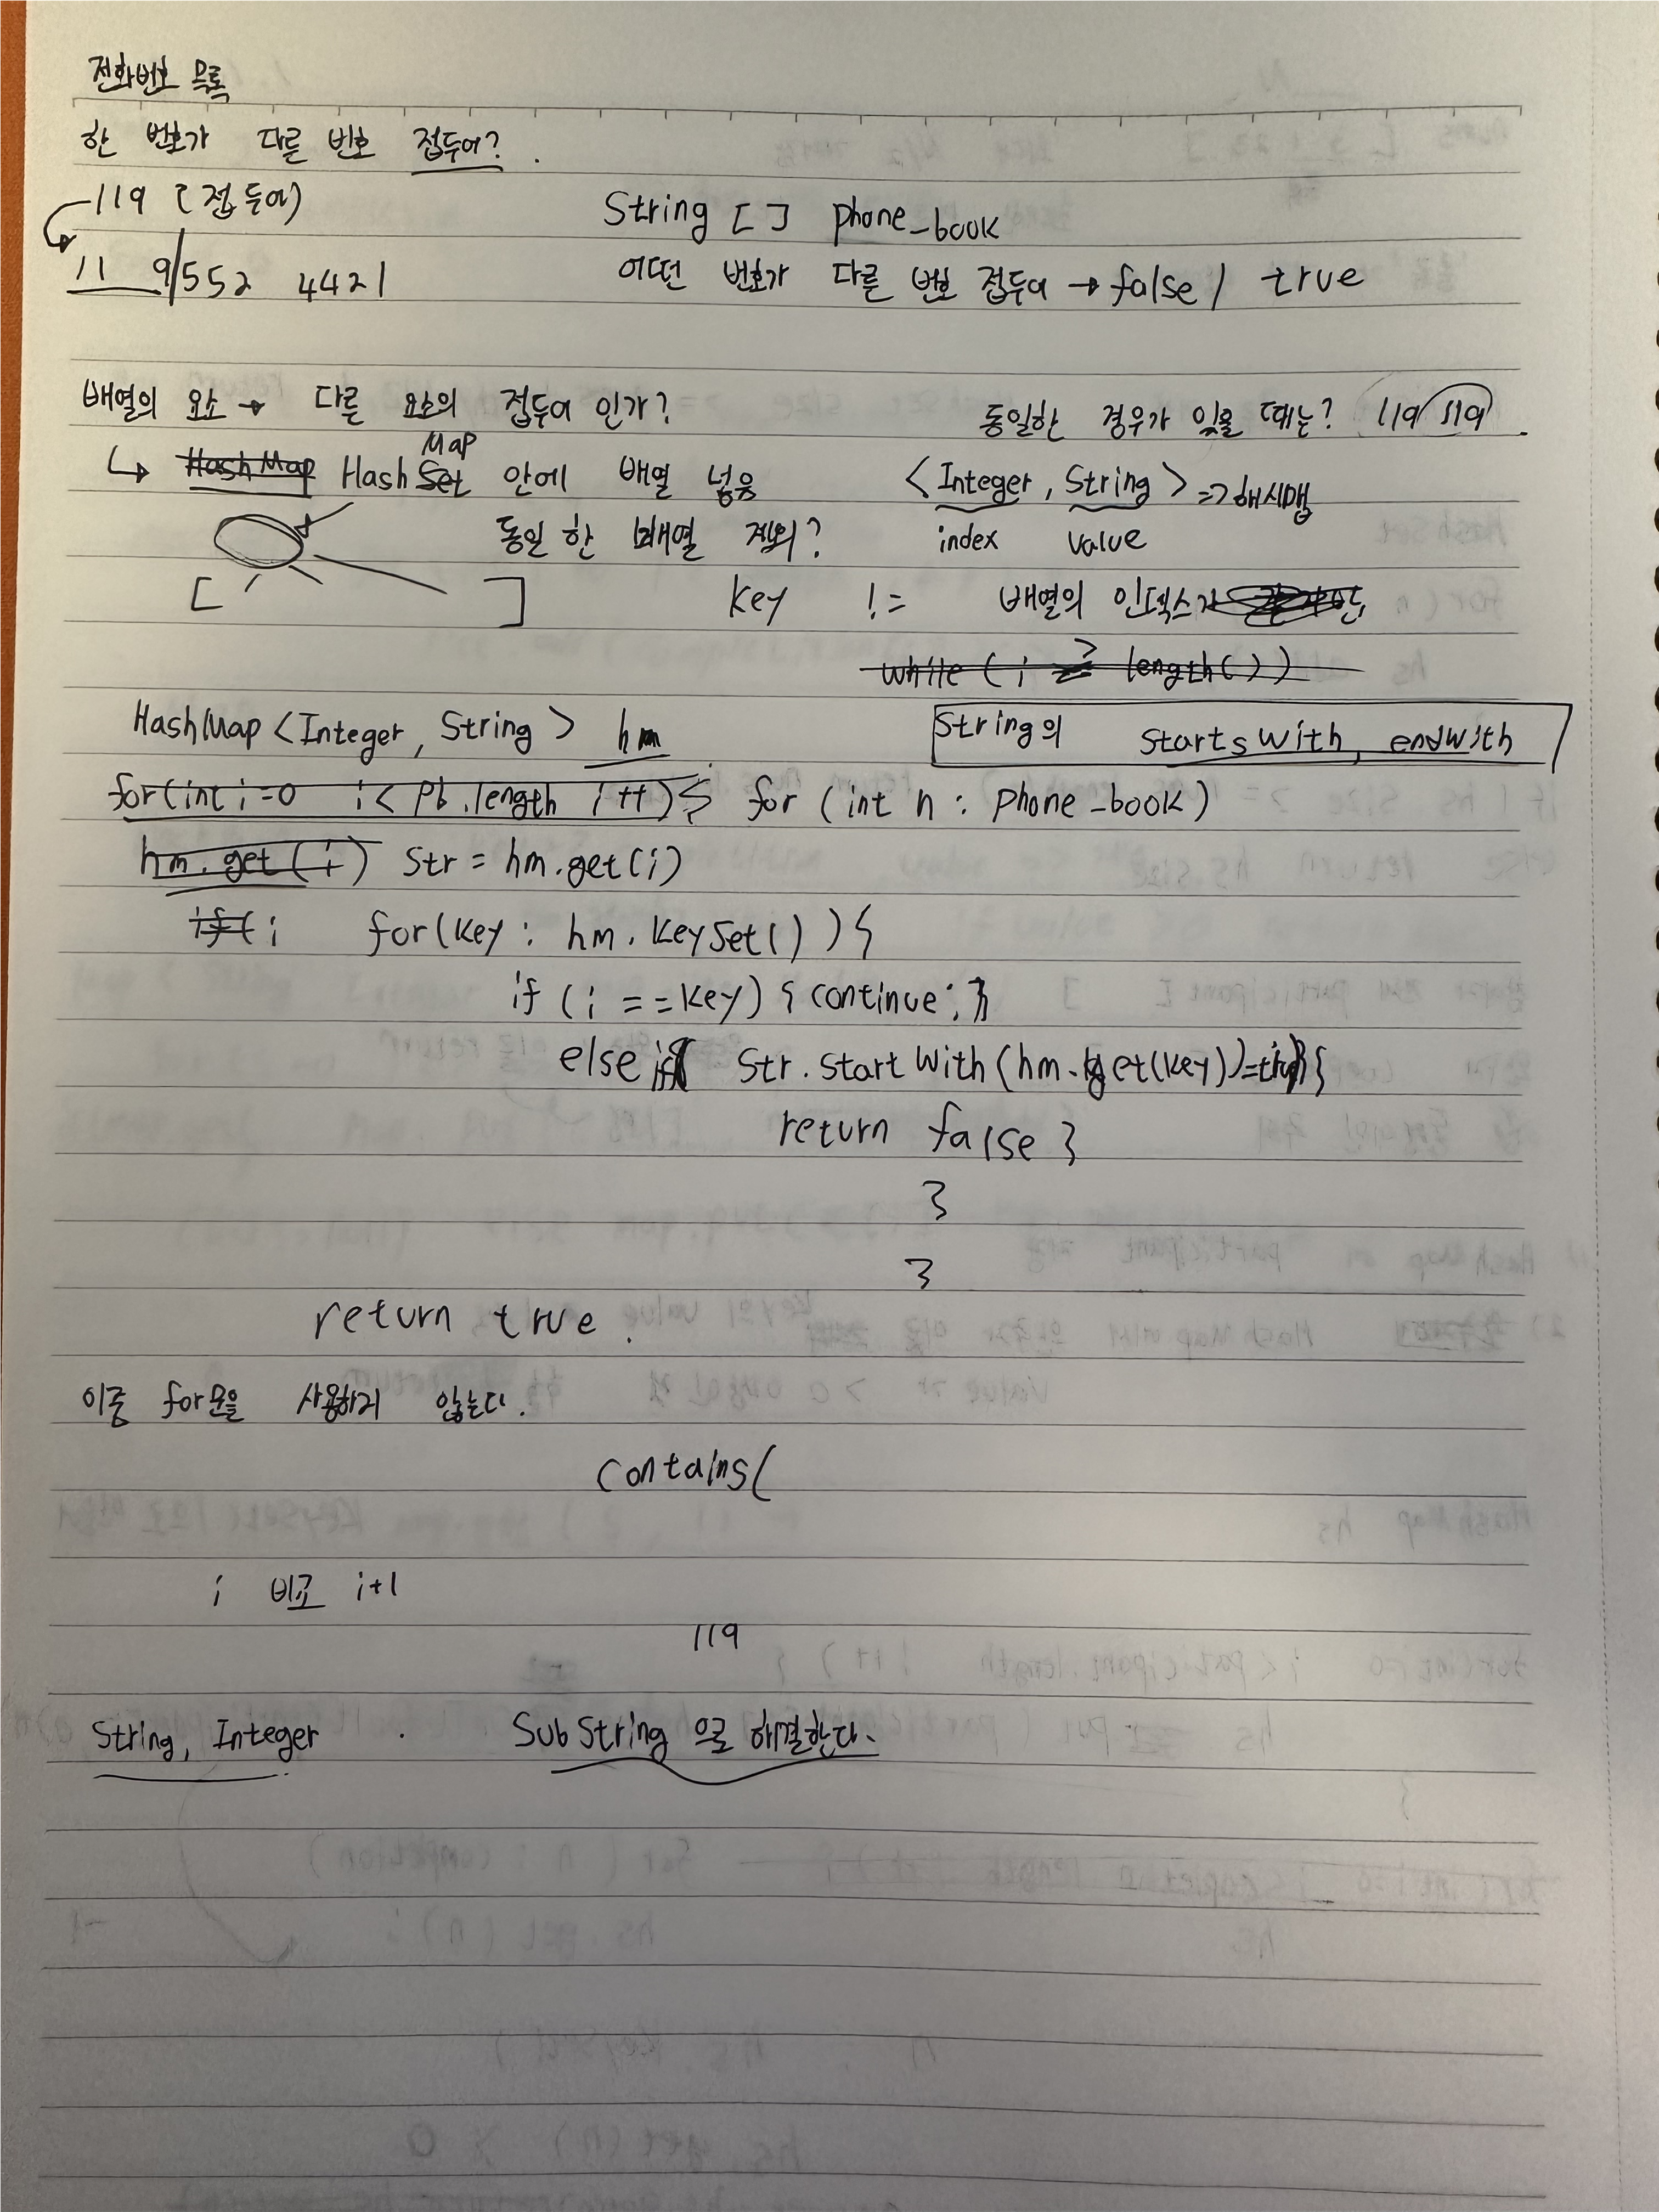 전화번호 목록
한 번호가 다른 번호 접두어? .
119 (접두어) String [ ] phone_book
11 9/552 4421 어떤 번호가 다른 번호 접두어 → false / true
배열의 요소 → 다른 요소의 접두어 인가? 동일한 경우가 있을 때는? 119 119
↳ HashMap Hash Set Map 안에 배열 넣음 <Integer, String> => 해시맵
동일 한 배열 제외? index value
[ ] key != 배열의 인덱스
while ( i length())
HashMap <Integer, String> hm String의 startswith, endwith
for(int i=0 i< pb.length i++){ for (int n : phone_book)
hm.get(i) str = hm.get(i)
if( i for(key : hm.keySet() ){
if (i ==key) { continue; }
else if( str.startwith(hm.get(key))
return false }
}
}
return true .
이중 for문을 사용하지 않는다.
contains(
i 비교 i+1
119
String, Integer . SubString 으로 해결한다.